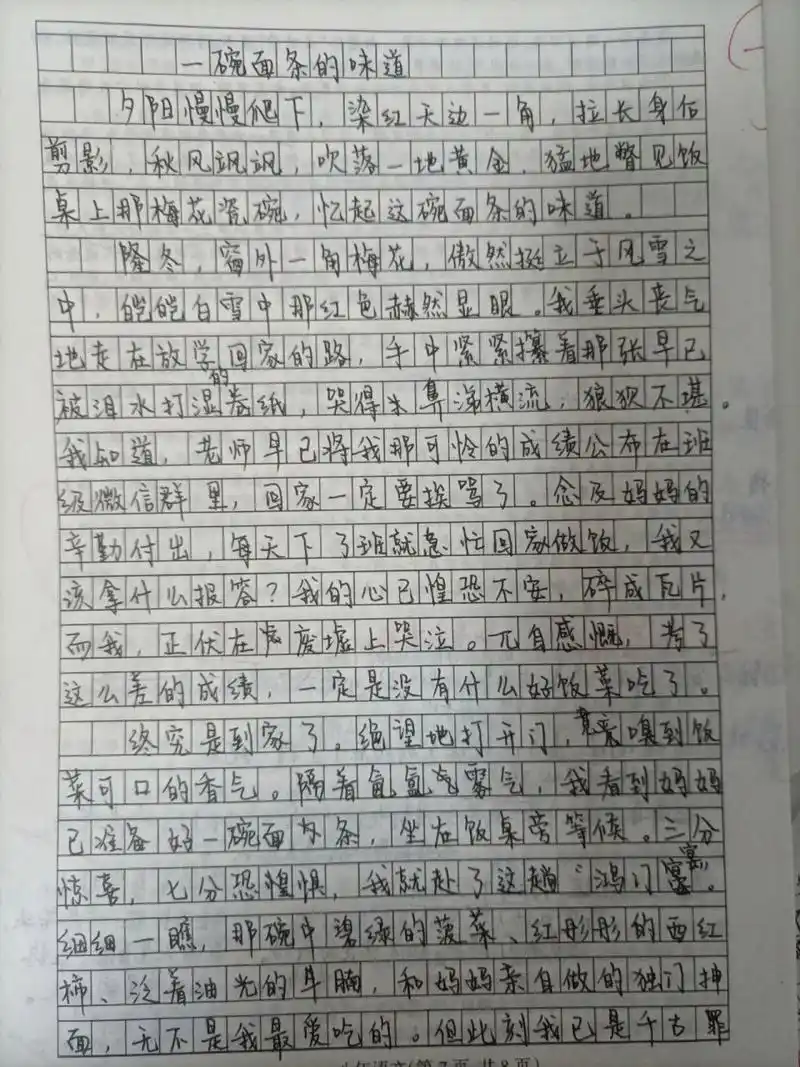 一碗面条的味道
夕阳慢慢爬下，染红天边一角，拉长身后
剪影，秋风飒飒，吹落一地黄金，猛地瞥见饭
桌上那梅花瓷碗，忆起这碗面条的味道。
隆冬，窗外一角梅花，傲然挺立于风雪之
中，皑皑白雪中那红色赫然显眼。我垂头丧气
地走在放学回家的路，手中紧紧攥着那张早已
被泪水打湿的卷纸，哭得涕横流，狼狈不堪。
我知道，老师早已将我那可怜的成绩公布在班
级微信群里，回家一定要挨骂了。念及妈妈的
辛勤付出，每天下了班就急忙回家做饭，我又
该拿什么报答？我的心已惶恐不安，碎成瓦片，
而我，正伏在废墟上哭泣。兀自感慨，考了
这么差的成绩，一定是没有什么好饭菜吃了。
终究是到家了。绝望地打开门，竟嗅到饭
菜可口的香气。隔着氤氲雾气，我看到妈妈
已准备好一碗面条，坐在饭桌旁等候。三分
惊喜，七分恐惶惧，我就赴了这趟“鸿门宴”。
细细一瞧，那碗中碧绿的菠菜、红彤彤的西红
柿、泛着油光的牛腩，和妈妈亲自做的独门抻
面，无不是我最爱吃的。但此刻我已是千古罪
语文(第7页 共8页)